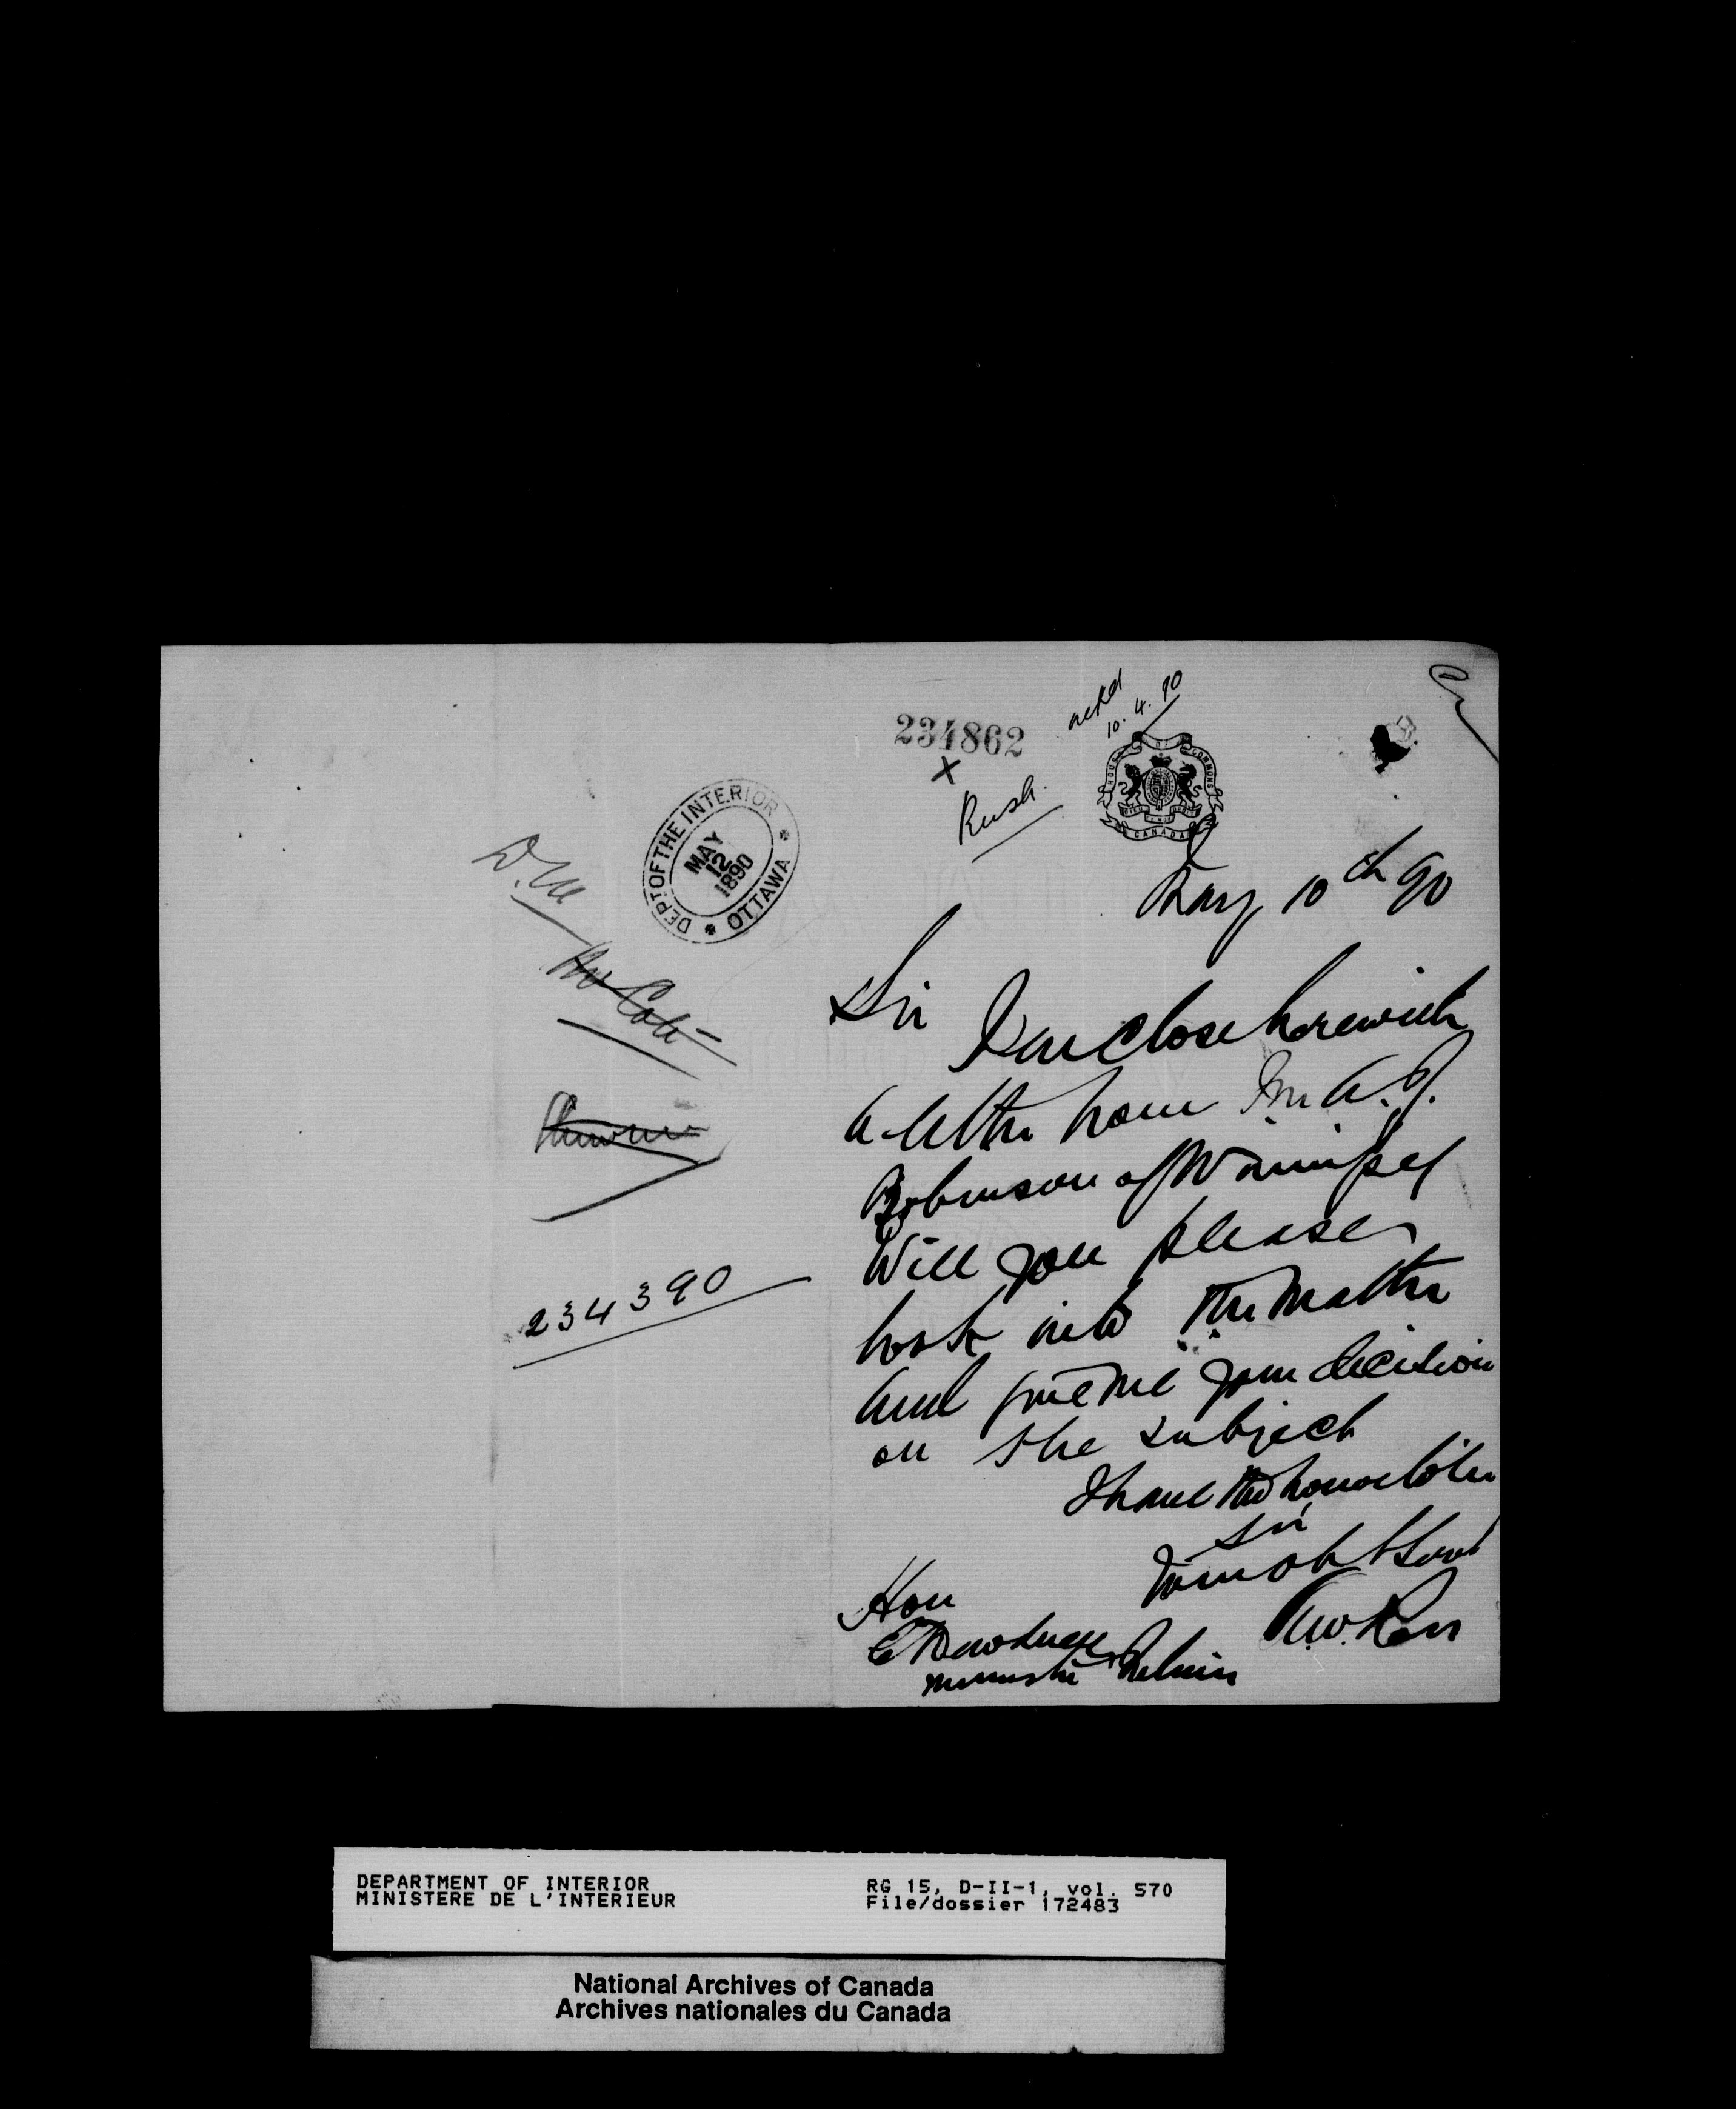 234862
X
Rush.
ackd
10.4.90
HOUSE OF COMMONS
CANADA
DEPT OF THE INTERIOR
MAY
12
1890
OTTAWA
D.M
Mr Coté
234390
May 10th 90
Sir
I enclose herewith
a letter from Mr A. J.
Robinson of Winnipeg
Will you please
look into the matter
and give me your decision
on the subject
I have the honor to be
Sir
Your obt Servt
A.W. Ross
Hon
E Dewdney
Minister Interior
DEPARTMENT OF INTERIOR
MINISTERE DE L'INTERIEUR
RG 15, D-II-1, vol. 570
File/dossier 172483
National Archives of Canada
Archives nationales du Canada